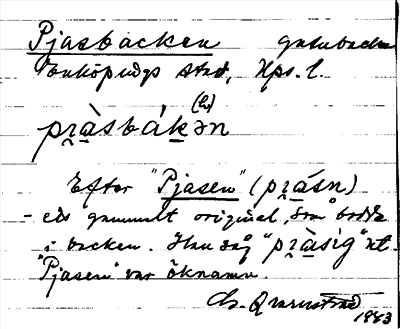 Pjasbacken gatubacke
Enköpings stad, Ups. l.
(b)
pr̯à̱sbák̯ən
Efter "Pjasen" (pr̯à̱sn)
- ett gammalt original, som bodde
i backen. Han såg "pr̯à̱sig" ut.
"Pjasen" var öknamn.
1943